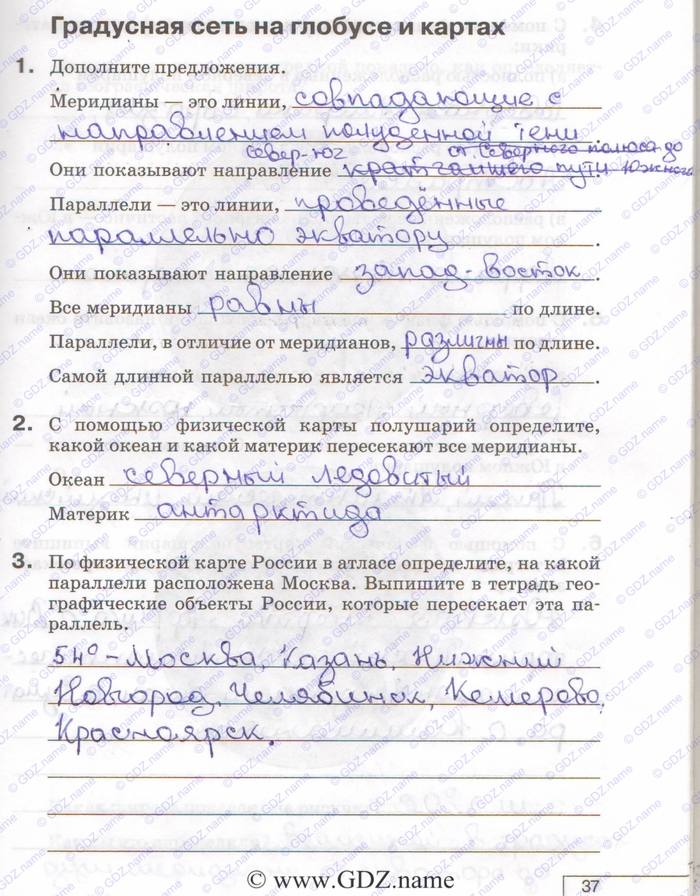 Градусная сеть на глобусе и картах
1. Дополните предложения.
Меридианы — это линии, совпадающие с
направлением полуденной тени
север-юг от Северного полюса до
Они показывают направление кратчайшего пути Южного
Параллели — это линии, проведённые
параллельно экватору.
Они показывают направление запад-восток.
Все меридианы равны по длине.
Параллели, в отличие от меридианов, различны по длине.
Самой длинной параллелью является экватор.
2. С помощью физической карты полушарий определите,
какой океан и какой материк пересекают все меридианы.
Океан северный ледовитый
Материк антарктида
3. По физической карте России в атласе определите, на какой
параллели расположена Москва. Выпишите в тетрадь гео-
графические объекты России, которые пересекает эта па-
раллель.
54° - Москва, Казань, Нижний
Новгород, Челябинск, Кемерово,
Красноярск.
37
© www.GDZ.name